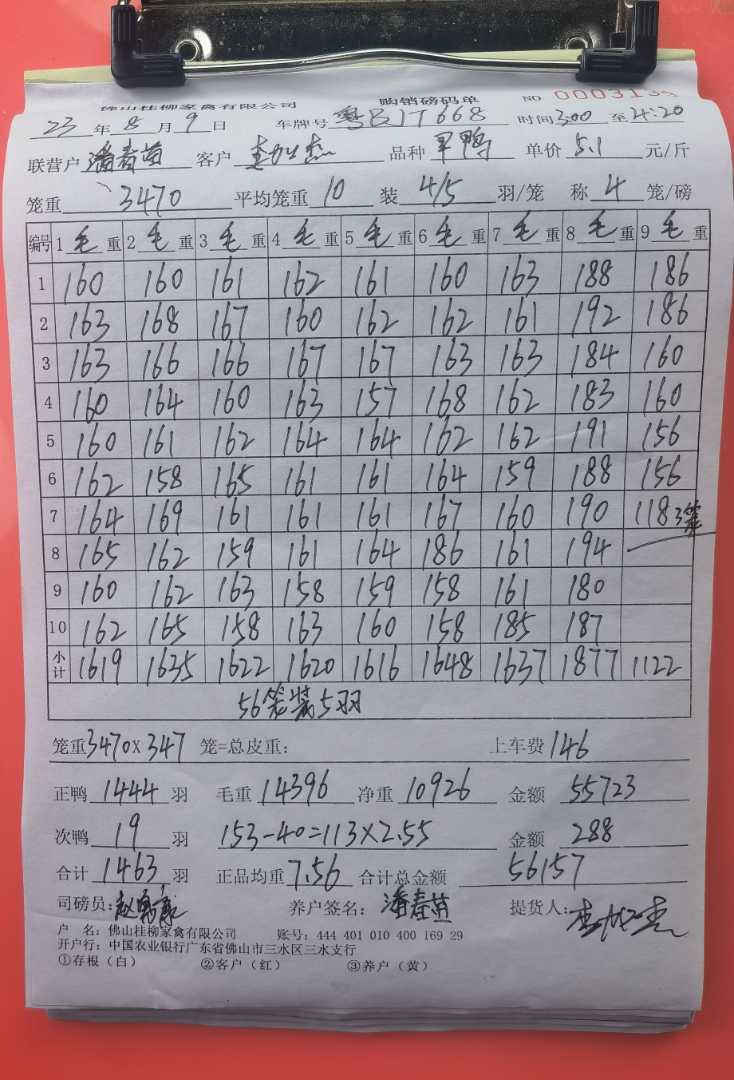 佛山桂柳家禽有限公司 购销磅码单 NO 000313
23 年 8 月 9 日 车牌号 粤BJT668 时间 3:00 至 4:20
联营户 潘春苗 客户 品种 甲鸭 单价 5.1 元/斤
笼重 3470 平均笼重 10 装 4/5 羽/笼 称 4 笼/磅
编号 1 毛 重 2 毛 重 3 毛 重 4 毛 重 5 毛 重 6 毛 重 7 毛 重 8 毛 重 9 毛 重
1 160 160 161 162 161 160 163 188 186
2 163 168 167 160 162 162 161 192 186
3 163 166 166 167 167 163 163 184 160
4 160 164 160 163 157 168 162 183 160
5 160 161 162 164 164 162 162 191 156
6 162 158 165 161 161 164 159 188 156
7 164 169 161 161 161 167 160 190 118 3笼
8 165 162 159 161 164 186 161 194
9 160 162 163 158 159 158 161 180
10 162 165 158 163 160 158 185 187
小计 1619 1635 1622 1620 1616 1648 1637 1877 1122
56笼装5羽
笼重 3470X347 笼=总皮重: 上车费 146
正鸭 1444 羽 毛重 14396 净重 10926 金额 55723
次鸭 19 羽 153-40=113X2.55 金额 288
合计 1463 羽 正品均重 7.56 合计总金额 56157
司磅员: 养户签名: 潘春苗 提货人:
户 名: 佛山桂柳家禽有限公司 账号: 444 401 010 400 169 29
开户行: 中国农业银行广东省佛山市三水区三水支行
①存根（白） ②客户（红） ③养户（黄）